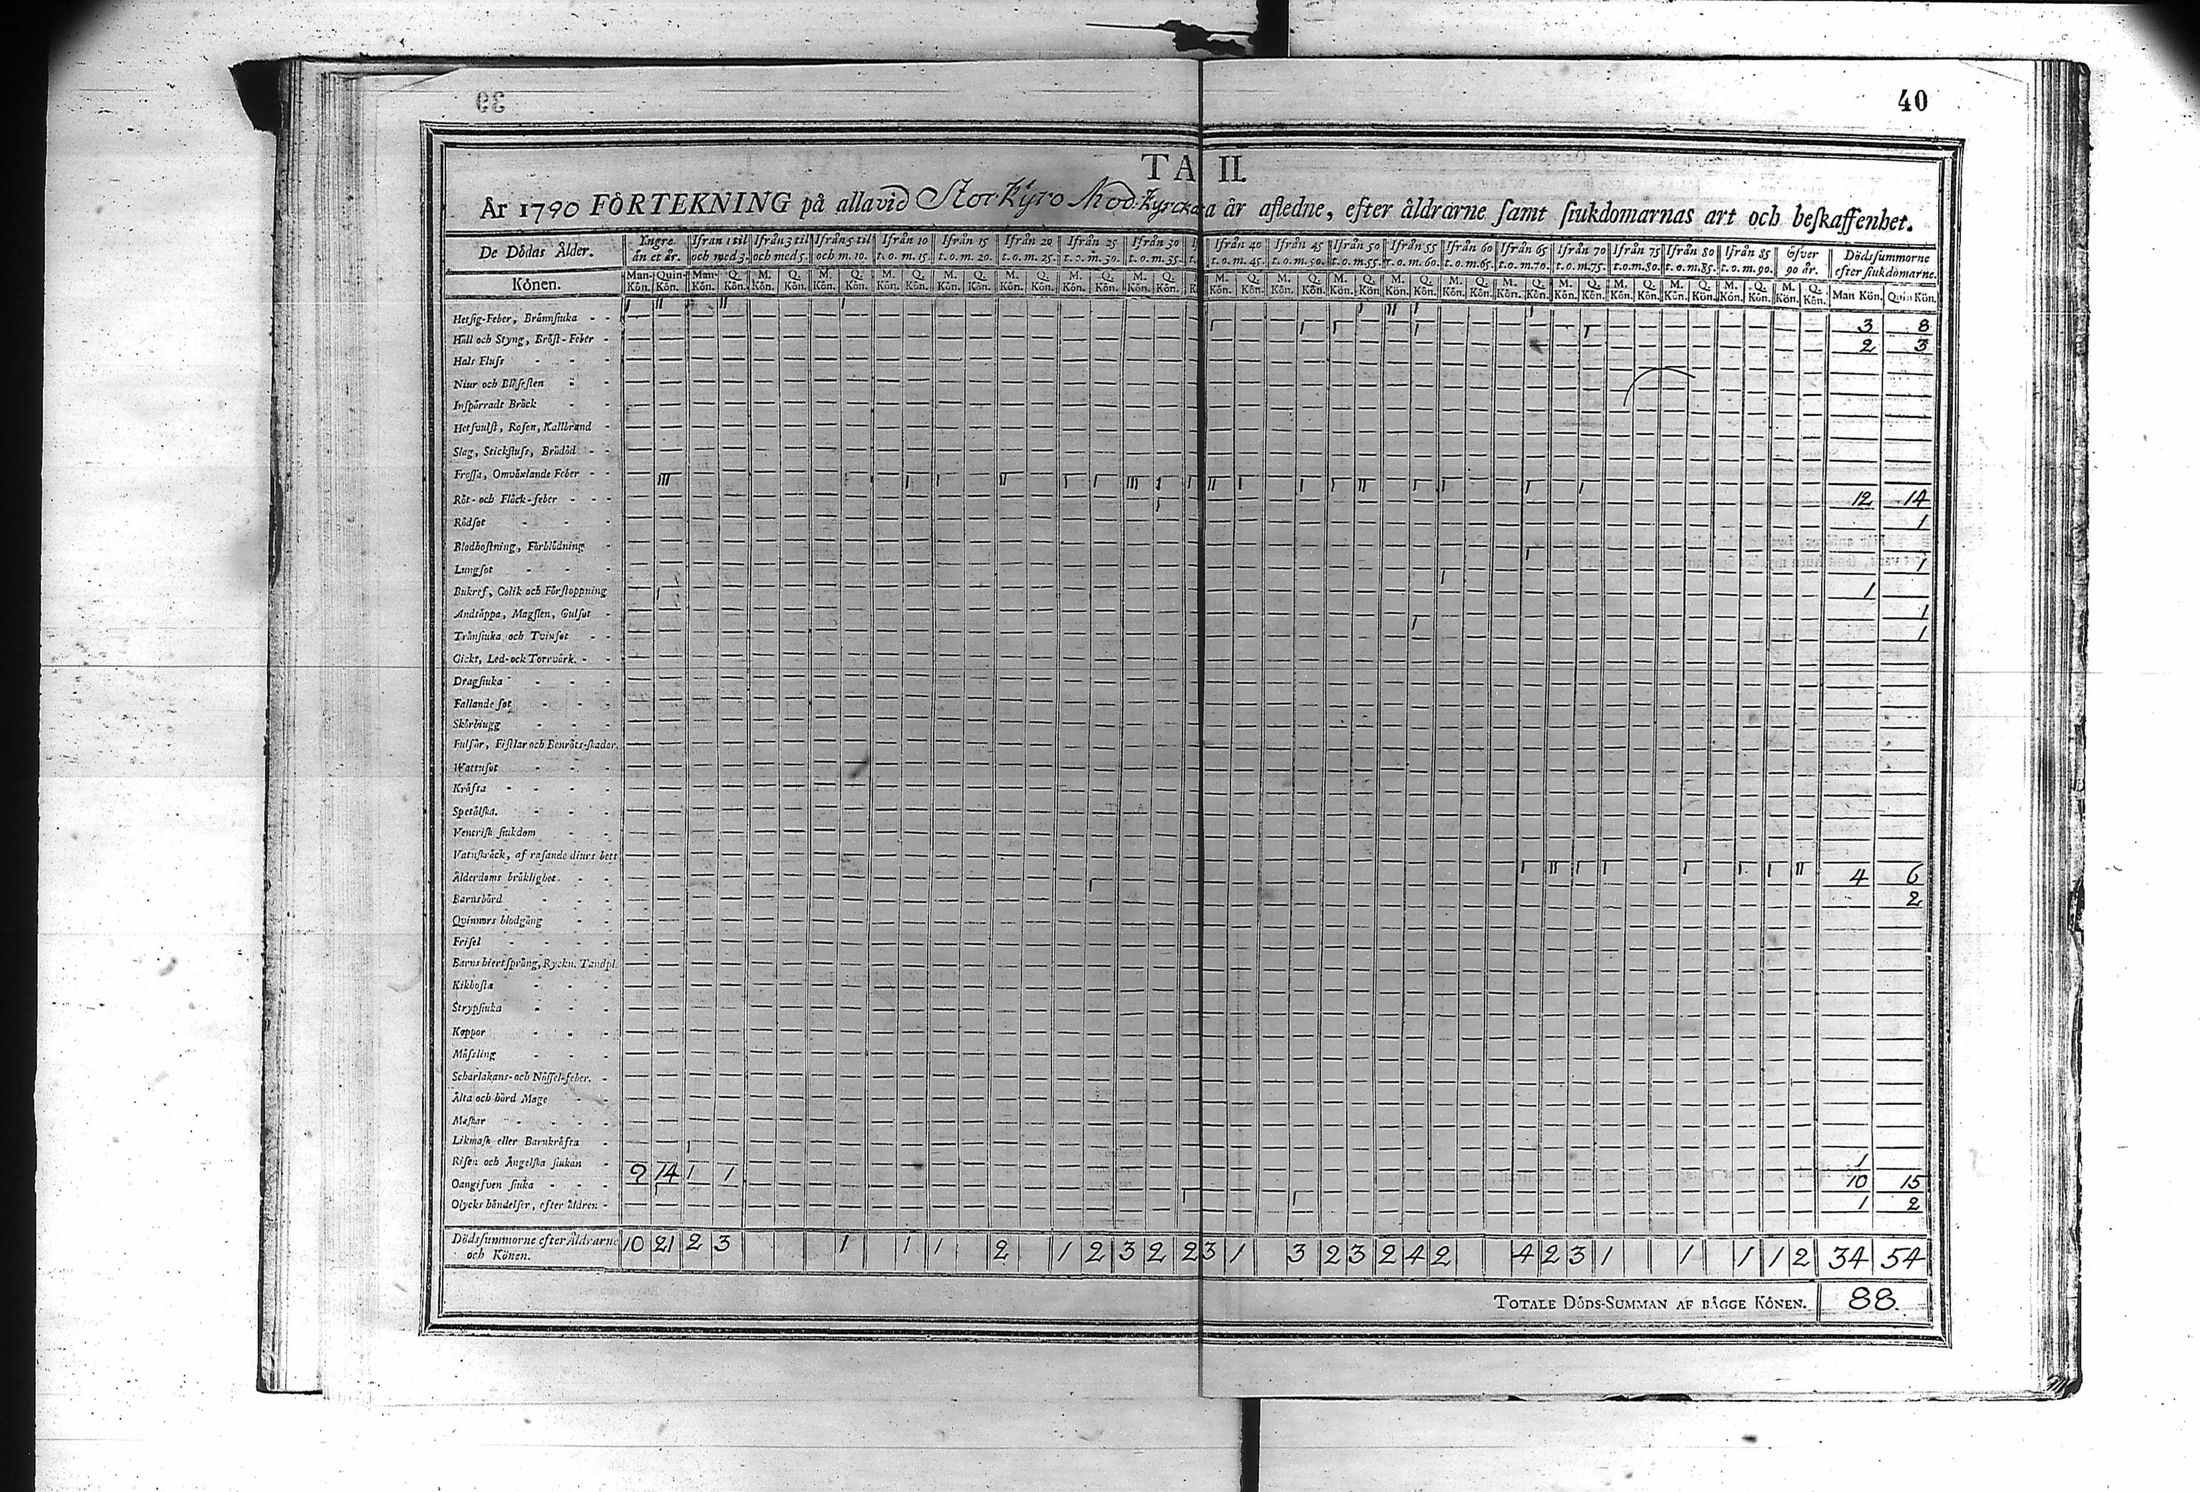 39
40
TA II.
År 1790 FÖRTEKNING på alla vid Stor Kÿro Mod. Kyrcka a år afledne, efter åldrarne samt siukdomarnas art och beskaffenhet.
De Dödas Ålder. Yngre än et år. Ifrån 1 til och med 3. Ifrån 3 til och med 5. Ifrån 5 til och m. 10. Ifrån 10 t. o. m. 15. Ifrån 15 t. o. m. 20. Ifrån 20 t. o. m. 25. Ifrån 25 t. o. m. 30. Ifrån 30 t. o. m. 35. Ifrån 40 t. o. m. 45. Ifrån 45 t. o. m. 50. Ifrån 50 t. o. m. 55. Ifrån 55 t. o. m. 60. Ifrån 60 t. o. m. 65. Ifrån 65 t. o. m. 70. Ifrån 70 t. o. m. 75. Ifrån 75 t. o. m. 80. Ifrån 80 t. o. m. 85. Ifrån 85 t. o. m. 90. Öfver 90 år. Dödssummorne efter siukdomarne.
Könen. Man-Kön. Quin-Kön. Man-Kön. Q. Kön. M. Kön. Q. Kön. M. Kön. Q. Kön. M. Kön. Q. Kön. M. Kön. Q. Kön. M. Kön. Q. Kön. M. Kön. Q. Kön. M. Kön. Q. Kön. M. Kön. Q. Kön. M. Kön. Q. Kön. M. Kön. Q. Kön. M. Kön. Q. Kön. M. Kön. Q. Kön. M. Kön. Q. Kön. M. Kön. Q. Kön. M. Kön. Q. Kön. M. Kön. Q. Kön. M. Kön. Q. Kön. M. Kön. Q. Kön. Man Kön. Quin Kön.
Hetsig-Feber, Brännsiuka - - 3 8
Håll och Styng, Bröst-Feber - 2 3
Hals Fluss - - -
Niur och Blåsesten - -
Inspörradt Bråck - -
Hetsvulst, Rosen, Kallbrand -
Slag, Stickfluss, Brådöd - -
Frossa, Omväxlande Feber - -
Röt- och Fläck-feber - - - 12 14
Rödsot - - - 1
Blodhostning, Förblödning -
Lungsot - - - 1
Bukref, Colik och Förstoppning 1
Andtäppa, Magsten, Gulsot - 1
Trånsiuka och Tvinsot - - 1
Gickt, Led-ock Torrvärk. - -
Dragsiuka - - -
Fallande sot - - -
Skörbiugg - - -
Fulsår, Fistlar och Benröts-skador.
Wattusot - - -
Kräfta - - - -
Spetälska. - - -
Venerisk siukdom - -
Vatuskräck, af rasande diurs bett
Ålderdoms bräklighet. - - 4 6
Barnsbörd - - - 2
Quinnors blodgång - -
Frisel - - - -
Barns hiertsprång, Ryckn. Tandpl.
Kikhosta - - -
Strypsiuka - - -
Koppor - - -
Mässling - - -
Scharlakans- och Nässel-feber. -
Älta och hård Mage - -
Maskar - - - -
Likmask eller Barnkräfta -
Risen och Ängelska siukan - 1
Oangifven siuka - - - 9 14 1 1 10 15
Olycks händelser, efter åldren - 1 2
Dödssummorne efter Åldrarne och Könen. 10 21 2 3 1 1 1 2 1 2 3 2 2 3 1 3 2 3 2 4 2 4 2 3 1 1 1 1 2 34 54
TOTALE DÖDS-SUMMAN AF BÄGGE KÖNEN. 88.